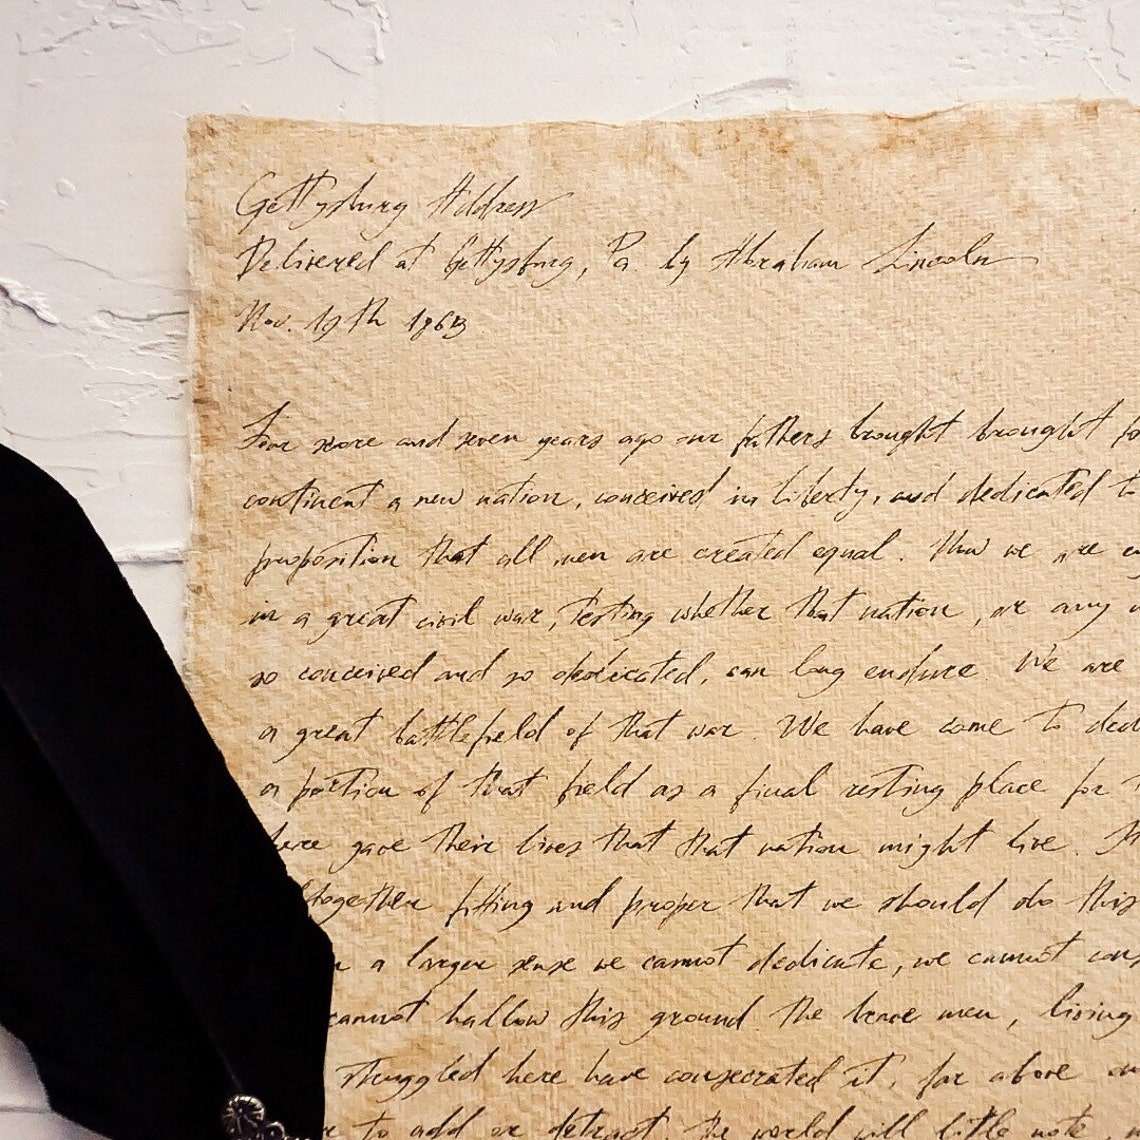 Gettysburg Address
Delivered at Gettysburg, Pa. by Abraham Lincoln
Nov. 19th 1863
Four score and seven years ago our fathers brought brought fo
continent a new nation, conceived in liberty, and dedicated to
proposition that all men are created equal. Now we are en
in a great civil war, testing whether that nation, or any
so conceived and so dedicated, can long endure. We are
a great battlefield of that war. We have come to dedi
a portion of that field as a final resting place for
here gave their lives that that nation might live.
ltogether fitting and proper that we should do this
a larger sense we cannot dedicate, we cannot cons
cannot hallow this ground the brave men, living
struggled here have consecrated it, far above
to add or detract. The world will little note,